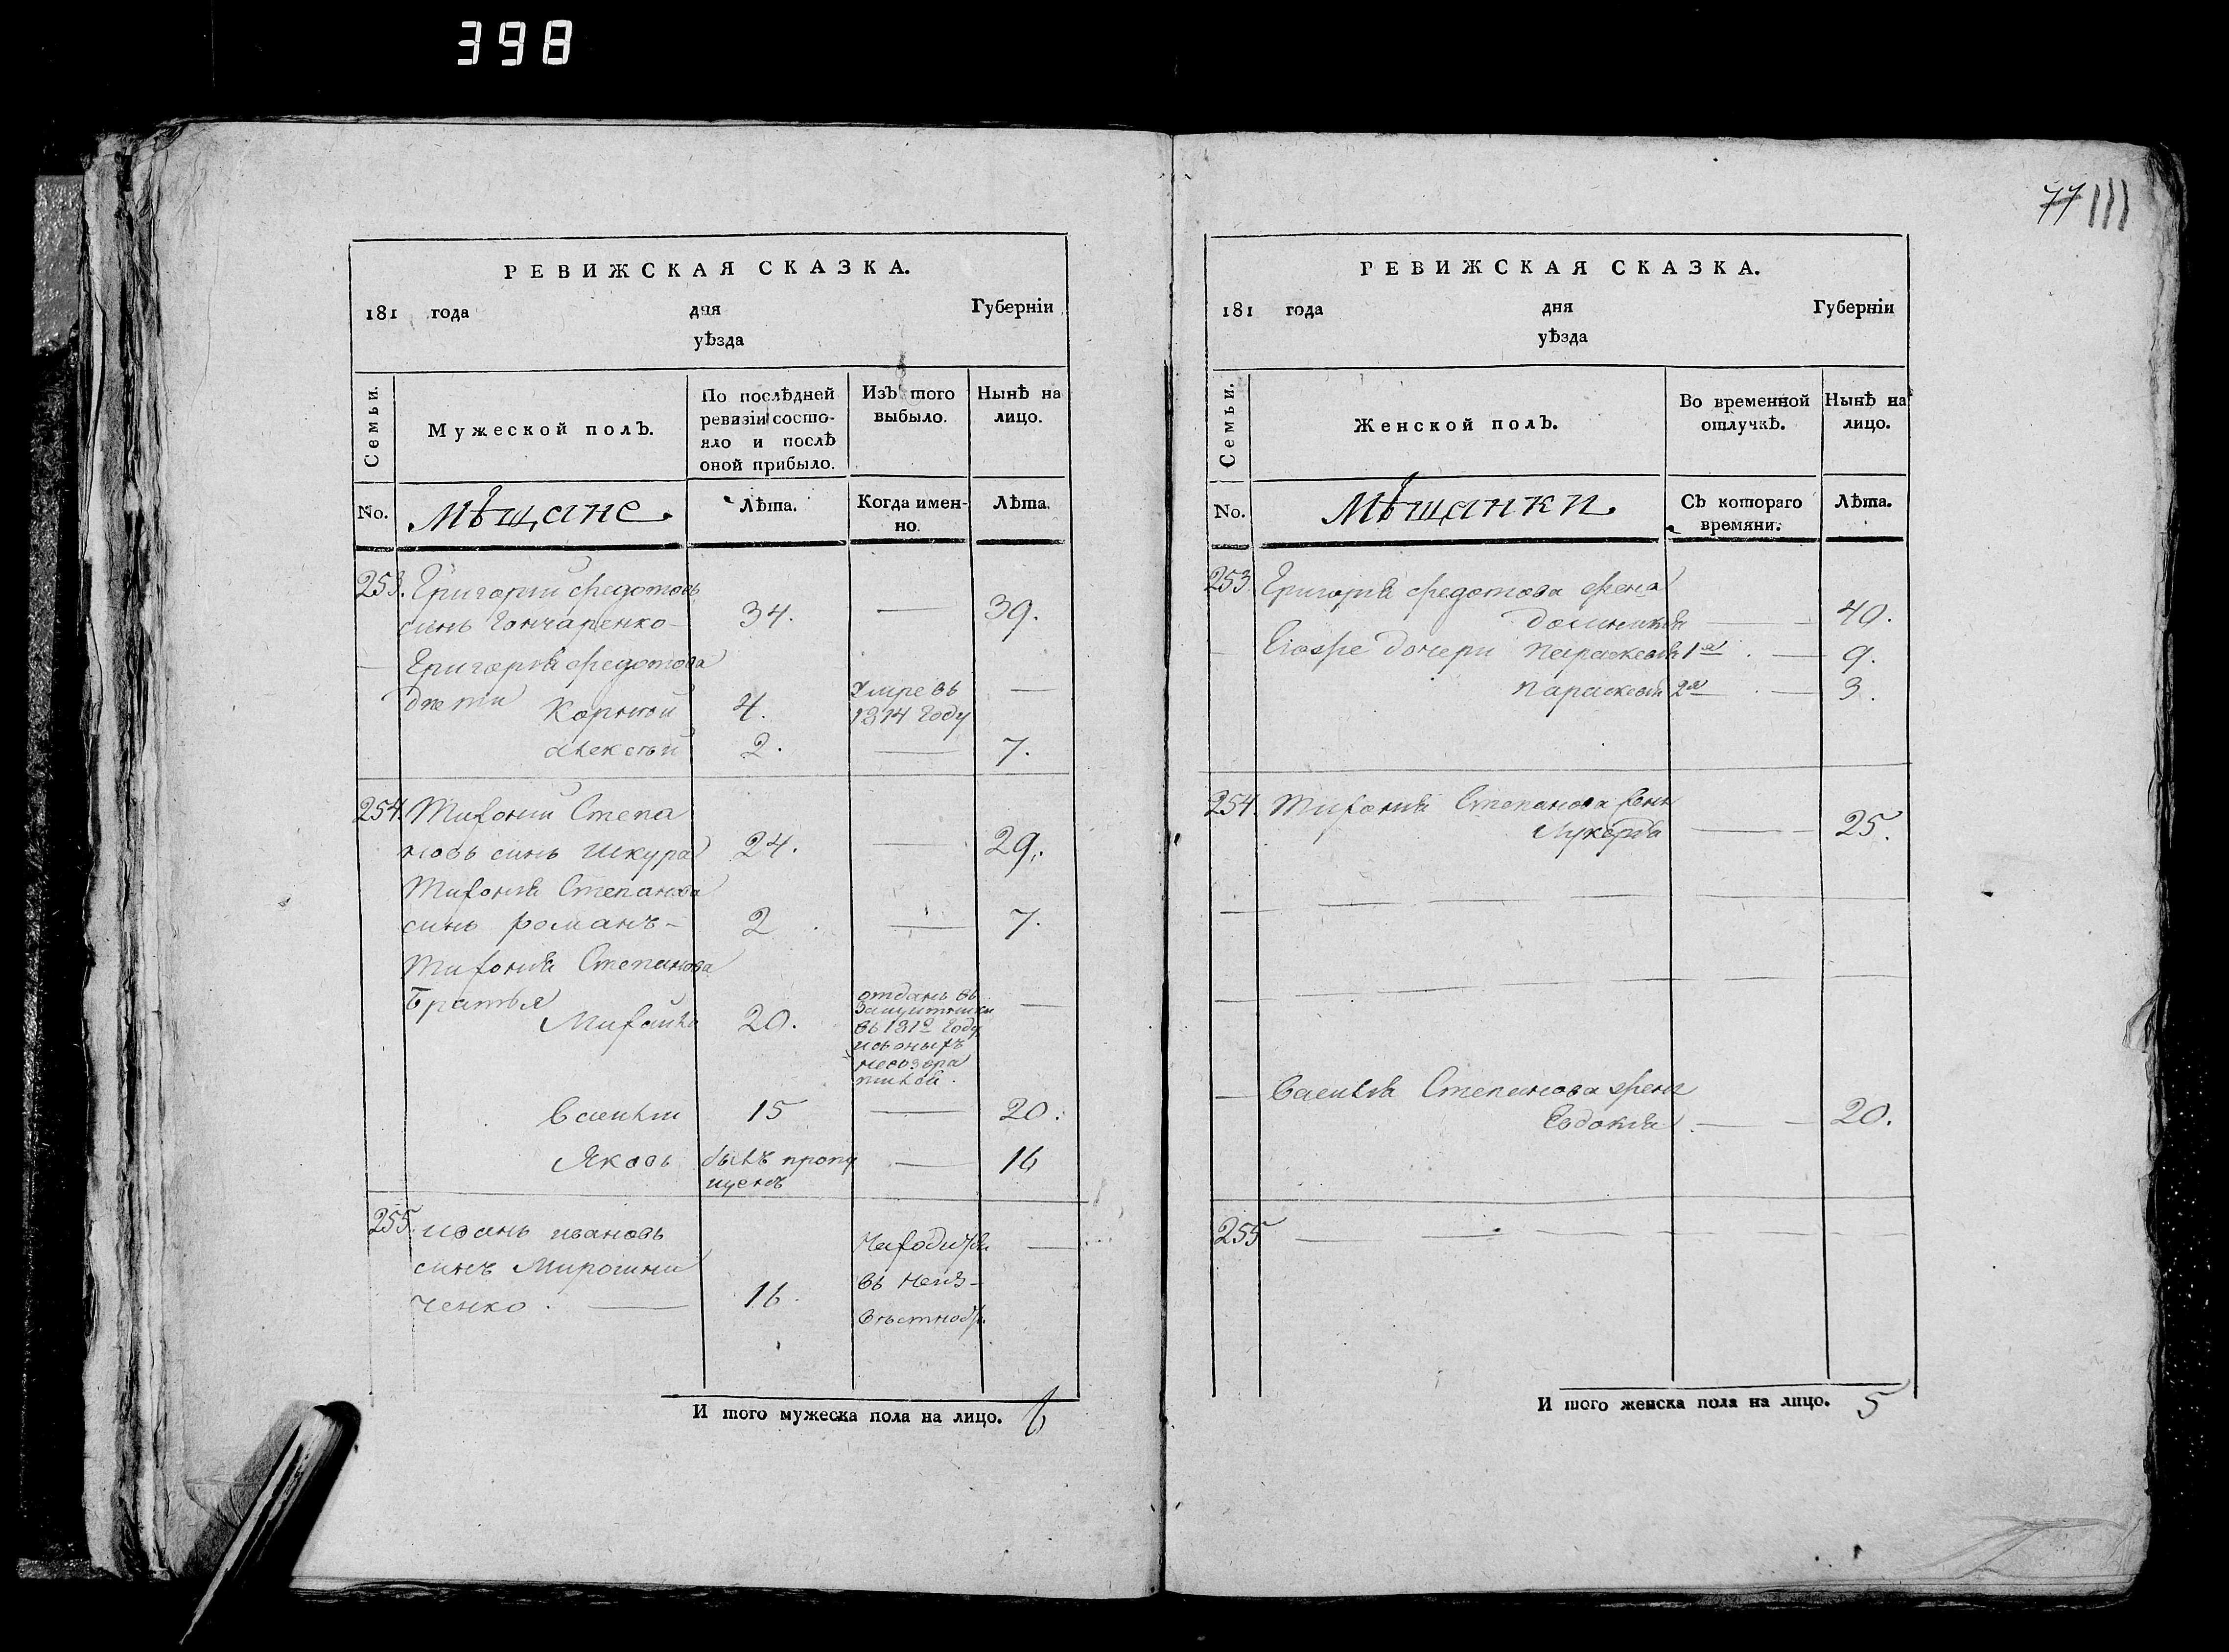 398
РЕВИЖСКАЯ СКАЗКА.
181 года дня Губерніи
уѣзда
Семьи.
Мужеской полъ.
По послѣдней
ревизіи состо-
яло и послѣ
оной прибыло.
Изъ того
выбыло.
Нынѣ на
лицо.
No.
мѣщане
Лѣта.
Когда имен-
но.
Лѣта.
253. Григорий Федотовъ
синъ Гончаренко 34. — 39.
Григория Федотова
дети Корней 4. Умре въ 1814 Году —
алексѣй 2. — 7.
254. Тихони Степа
новъ синъ шкура 24. — 29.
Тихония Степанова
синъ романъ 2 — 7.
Тихония Степанова
Братья
Михайло 20. отданъ въ
въ 1812 Году
—
Василий 15 — 20.
Яковъ былъ пропу
щенъ — 16
255. иванъ ивановъ
синъ Мирошни
ченко. — 16. Находится
въ неиз-
вѣстности —
И того мужеска пола на лицо. 6
77 111
РЕВИЖСКАЯ СКАЗКА.
181 года дня Губерніи
уѣзда
Семьи.
Женской полъ.
Во временной
отлучкѣ.
Нынѣ на
лицо.
No.
мѣщанки
Съ котораго
времяни.
Лѣта.
253 Григория Федотова жена
40.
Егоже дочери параскевия 1я — 9.
параскевия 2я — 3.
254. Тихония Степанова жена
Лукерья — 25.
Василия Степанова жена
Евдокия — 20.
255
И того женска пола на лицо. 5